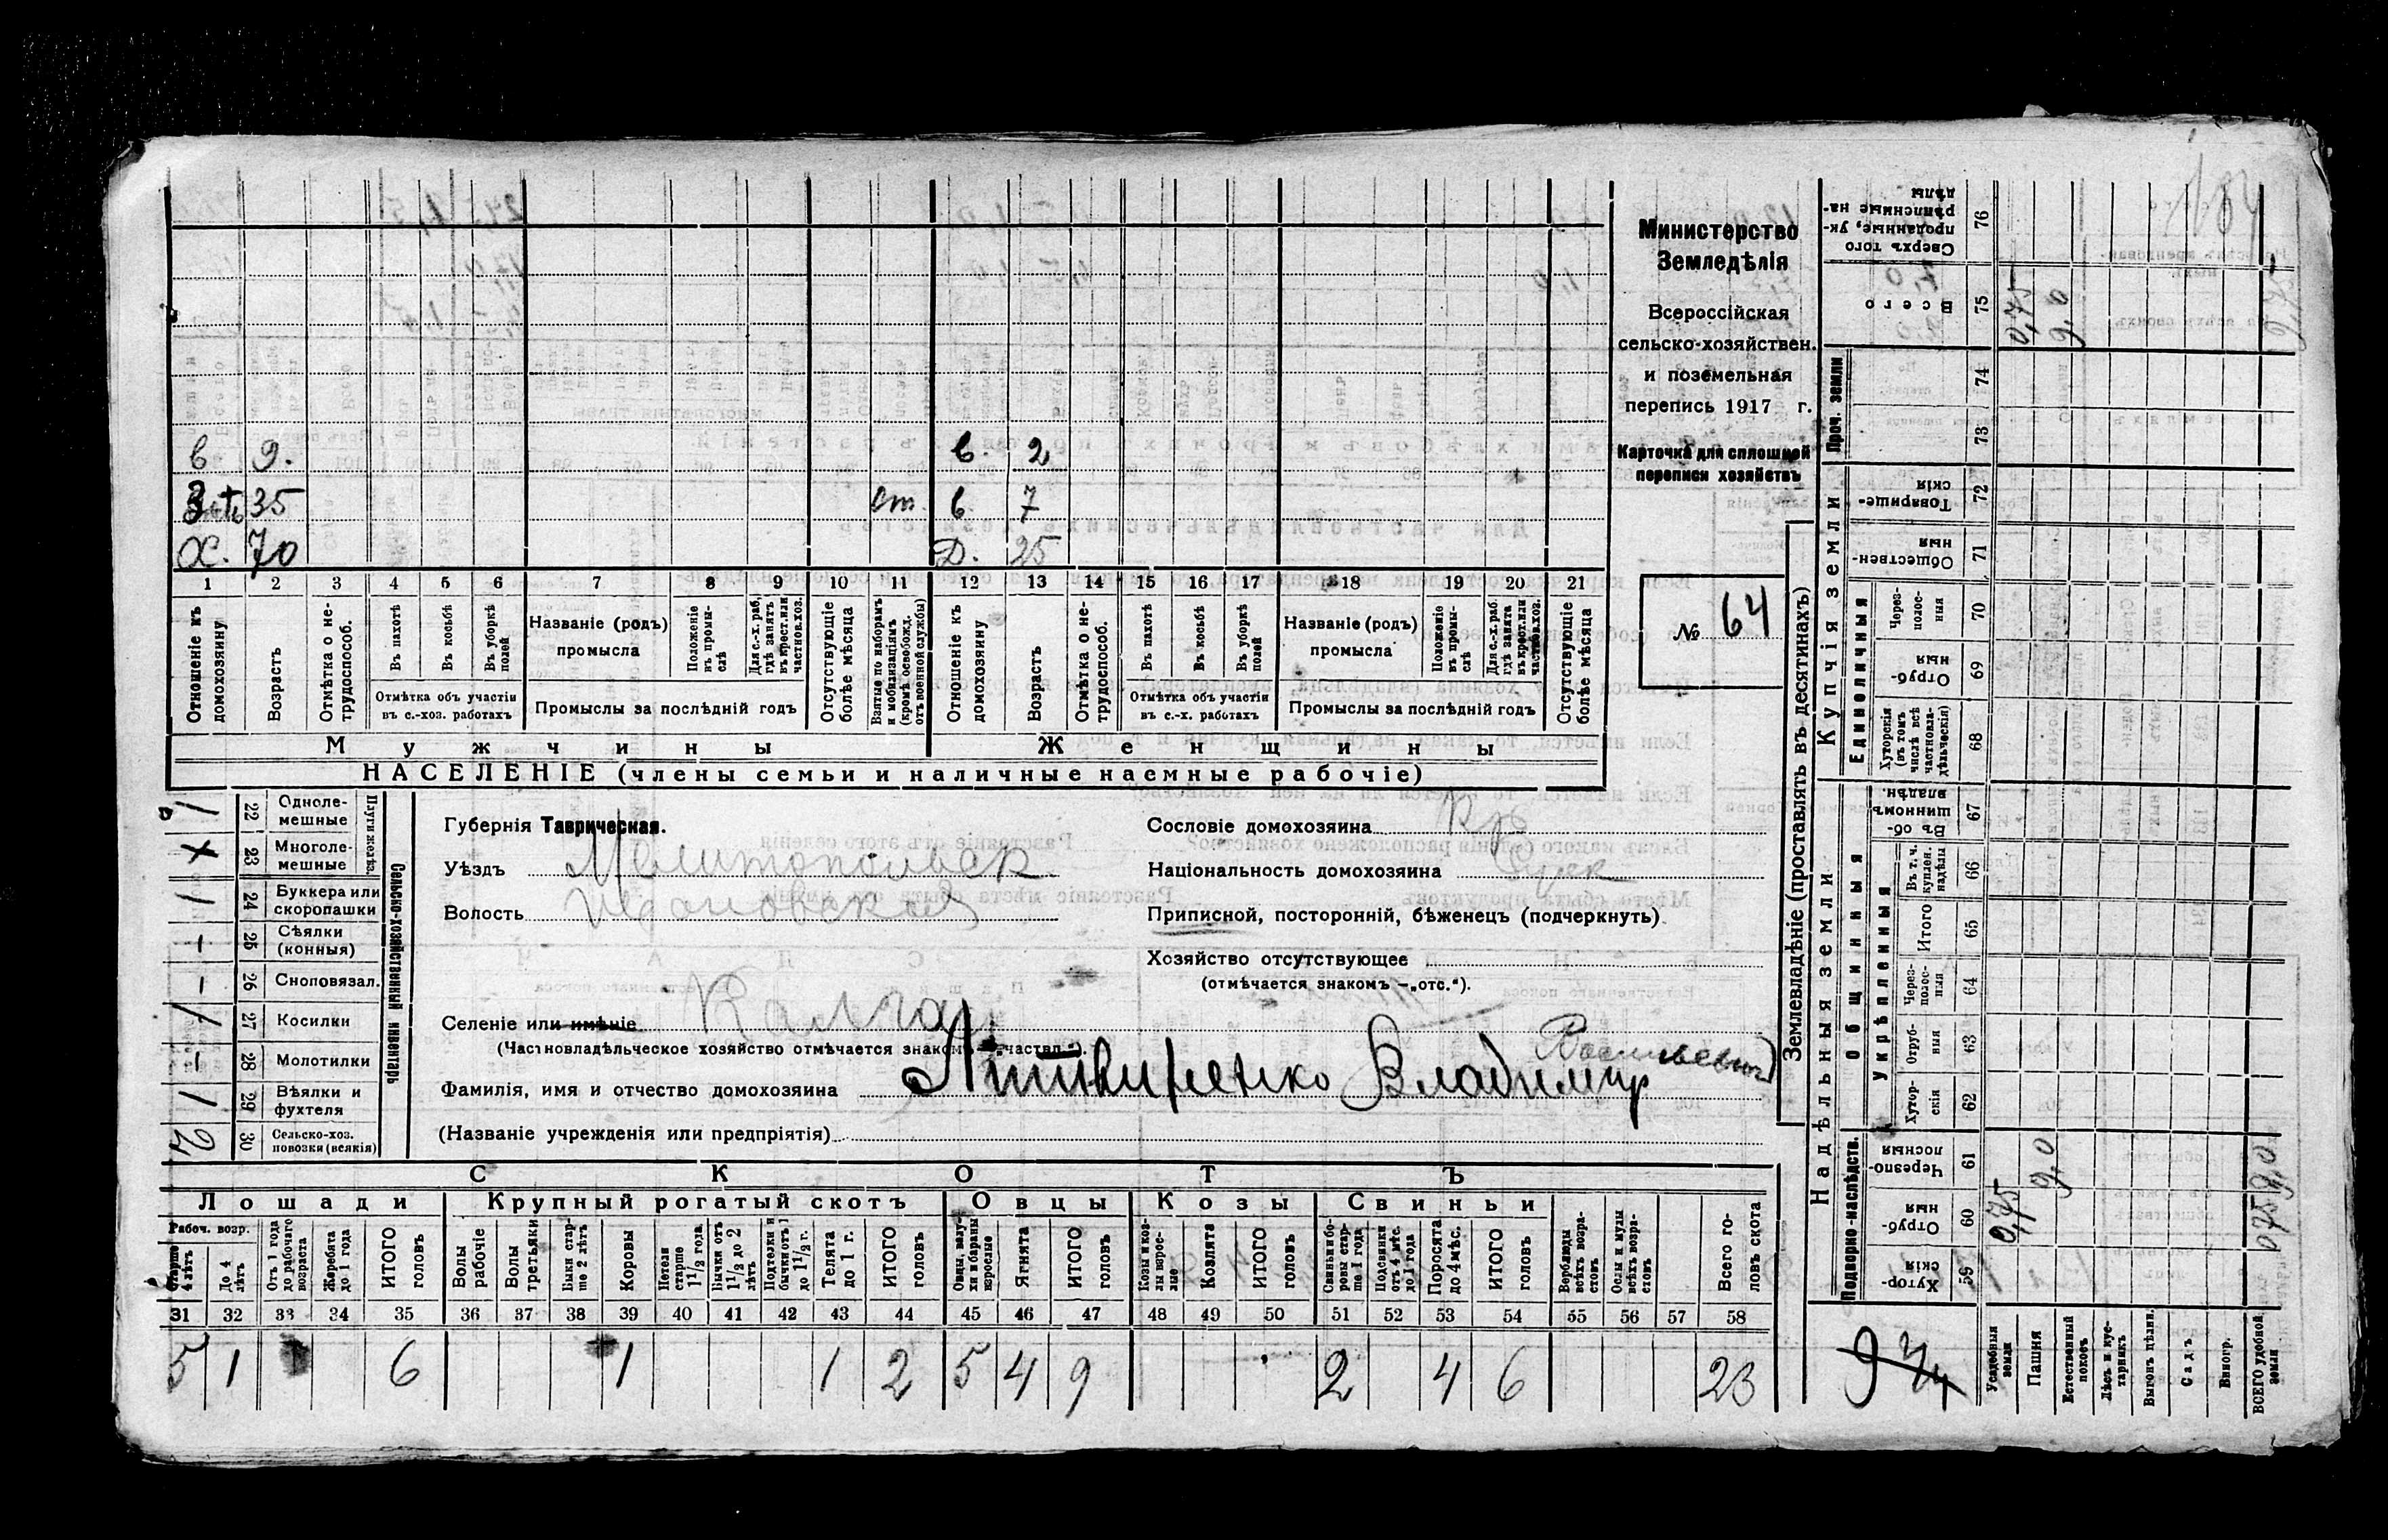 в 9. в. 2
З-ть 35 от. в. 7
Х. 70 Д. 25
1 2 3 4 5 6 7 8 9 10 11 12 13 14 15 16 17 18 19 20 21
Отношеніе къ домохозяину
Возрастъ
Отмѣтка о не-трудоспособ.
Въ пахотѣ
Въ косьбѣ
Въ уборкѣ полей
Отмѣтка объ участіи
въ с.-хоз. работахъ
Названіе (родъ)
промысла
Положеніе въ промы-слѣ
Для с.-х. раб. гдѣ занятъ въ крест. или частнов. хоз.
Промыслы за послѣдній годъ
Отсутствующіе болѣе мѣсяца
Взятые по наборамъ и мобилизаціямъ (кромѣ освобожд. отъ военной службы)
Отношеніе къ домохозяину
Возрастъ
Отмѣтка о не-трудоспособ.
Въ пахотѣ
Въ косьбѣ
Въ уборкѣ полей
Отмѣтка объ участіи
въ с.-х. работахъ
Названіе (родъ)
промысла
Положеніе въ промы-слѣ
Для с.-х. раб. гдѣ занята въ крест. или частнов. хоз.
Промыслы за послѣдній годъ
Отсутствующіе болѣе мѣсяца
Мужчины Женщины
НАСЕЛЕНІЕ (члены семьи и наличные наемные рабочіе)
Министерство
Земледѣлія
Всероссійская
сельско-хозяйствен.
и поземельная
перепись 1917 г.
Карточка для сплошной
переписи хозяйствъ
№ 64
Сельско-хозяйственный инвентарь
Плуги желѣз.
1 22 Одноле-мешные
х 23 Многоле-мешные
1 24 Буккера или скоропашки
- 25 Сѣялки (конныя)
- 26 Сноповязал.
1 27 Косилки
- 28 Молотилки
1 29 Вѣялки и фухтеля
2 30 Сельско-хоз. повозки (всякія)
Губернія Таврическая.
Уѣздъ Мелитопольск
Волость Ивановская
Селеніе или имѣніе Калга
(Частновладѣльческое хозяйство отмѣчается знакомъ – „частвл.").
Фамилія, имя и отчество домохозяина Литвиненко Владимир Васильевич
(Названіе учрежденія или предпріятія)
Сословіе домохозяина Кр
Національность домохозяина
Приписной, посторонній, бѣженецъ (подчеркнуть).
Хозяйство отсутствующее
(отмѣчается знакомъ –„отс.").
СКОТЪ
Лошади Крупный рогатый скотъ Овцы Козы Свиньи
Рабоч. возр.
Старше 4 лѣтъ
До 4 лѣтъ
Отъ 1 года до рабочаго возраста
Жеребята до 1 года
ИТОГО головъ
Волы рабочіе
Волы третьяки
Быки стар-ше 2 лѣтъ
Коровы
Нетели старше 1 1/2 года
Бычки отъ 1 1/2 до 2 лѣтъ
Подтелки и бычки отъ 1 до 1 1/2 г.
Телята до 1 г.
ИТОГО головъ
Овцы, валу-хи и бараны взрослые
Ягнята
ИТОГО головъ
Козы и коз-лы взрос-лые
Козлята
ИТОГО головъ
Свиньи бо-ровы стар-ше 1 года
Подсвинки отъ 4 мѣс. до 1 года
Поросята до 4 мѣс.
ИТОГО головъ
Верблюды всѣхъ возра-стовъ
Ослы и мулы всѣхъ возра-стовъ
Всего го-ловъ скота
31 32 33 34 35 36 37 38 39 40 41 42 43 44 45 46 47 48 49 50 51 52 53 54 55 56 57 58
5 1 6 1 1 2 5 4 9 2 4 6 23
Землевладѣніе (проставлять въ десятинахъ)
Надѣльныя земли Купчія земли Проч. земли
Подворно-наслѣдств.
Общинныя
Укрѣпленныя
Единоличныя
Сверхъ того проданные, ук-рѣпленные на-дѣлы 76
Всего 75 0,75 9,0
74
73
Товарище-скія 72
Обществен-ныя 71
Через-полос-ныя 70
Отруб-ныя 69
Хуторскія (въ томъ числѣ всѣ частновла-дѣльческія) 68
Въ об-щинномъ владѣн. 67
Въ т. ч. куплен. надѣлы 66
Итого 65
Через-полос-ныя 64
Отруб-ныя 63
Хутор-скія 62
Черезпо-лосныя 61 9,0 9,0
Отруб-ныя 60 0,75 075
Хутор-скія 59
9 3/4
Усадебныя земли
Пашня
Естественный покосъ
Лѣсъ и кус-тарникъ
Выгонъ цѣлин.
Садъ
Виногр.
ВСЕГО удобной земли